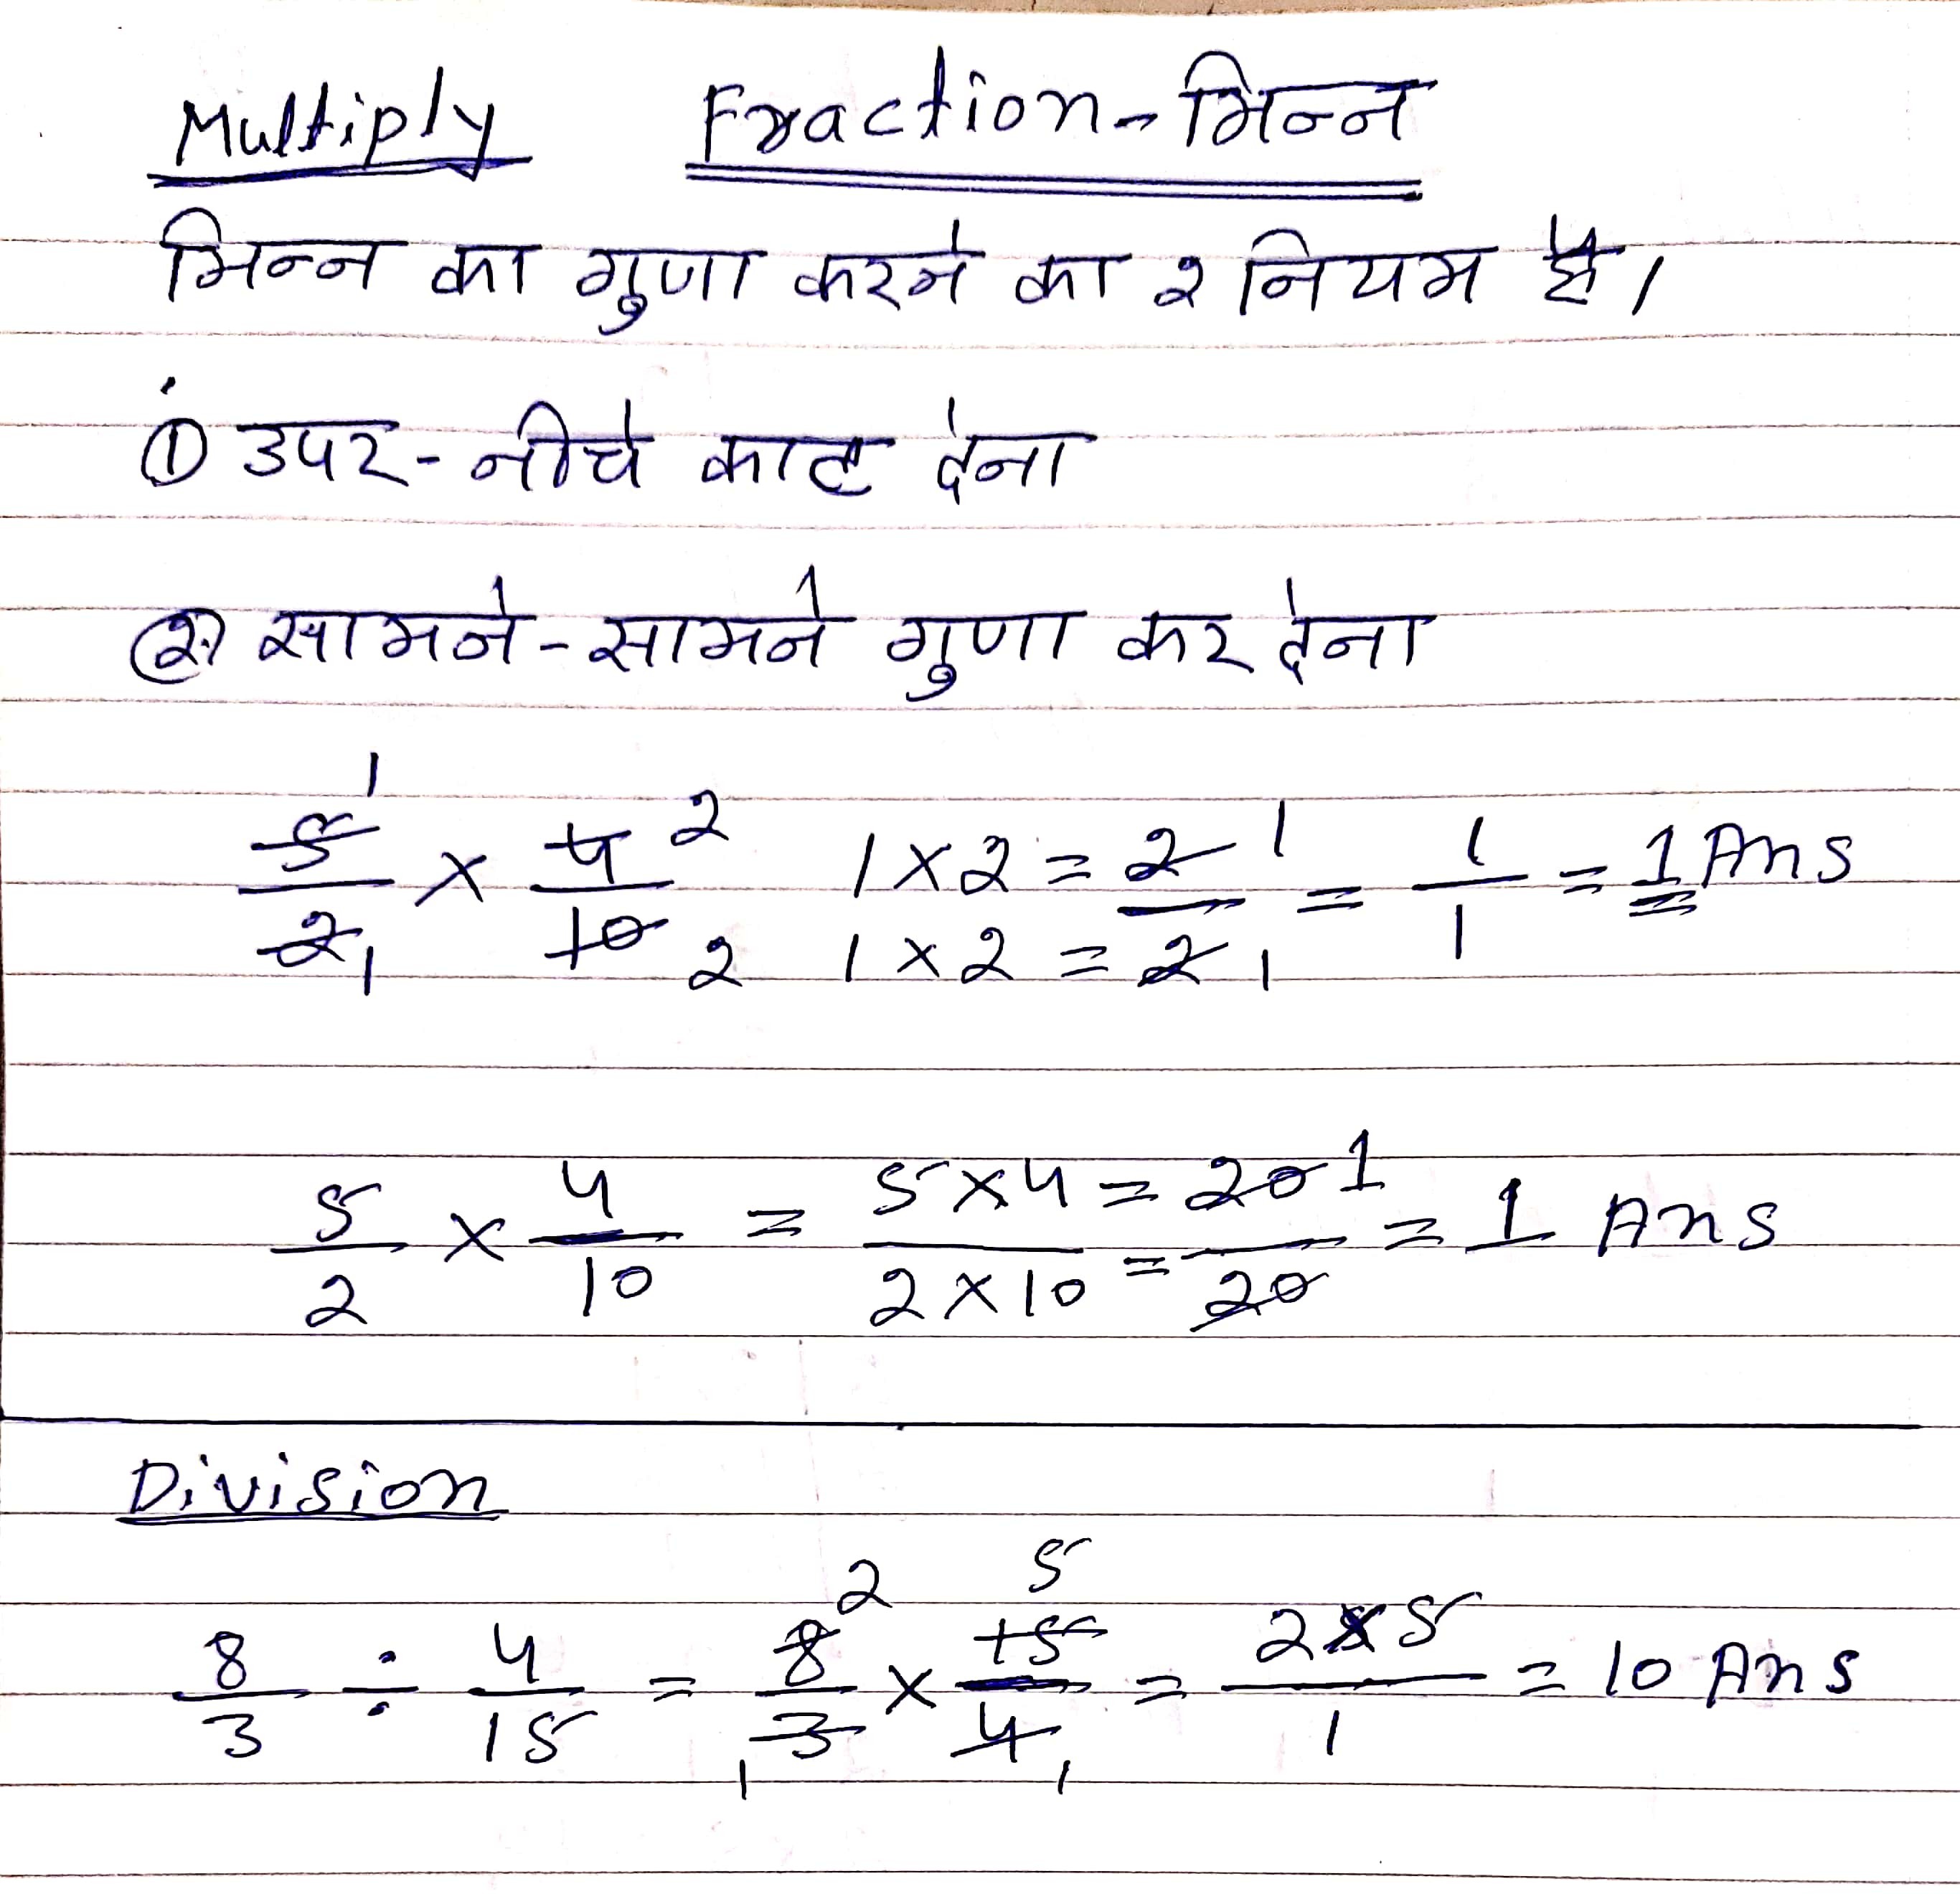 Multiply Fraction - भिन्न
भिन्न का गुणा करने का २ नियम है।
① उपर - नीचे काट देना
② सामने - सामने गुणा कर देना
1 2
5/2 × 4/10 1×2 = 2/2 1 = 1/1 = 1 Ans
1 2 1×2 = 2 1
5/2 × 4/10 = 5×4/2×10 = 20/20 1 = 1 Ans
Division
2 5
8/3 ÷ 4/15 = 8/3 × 15/4 = 2×5/1 = 10 Ans
1 1